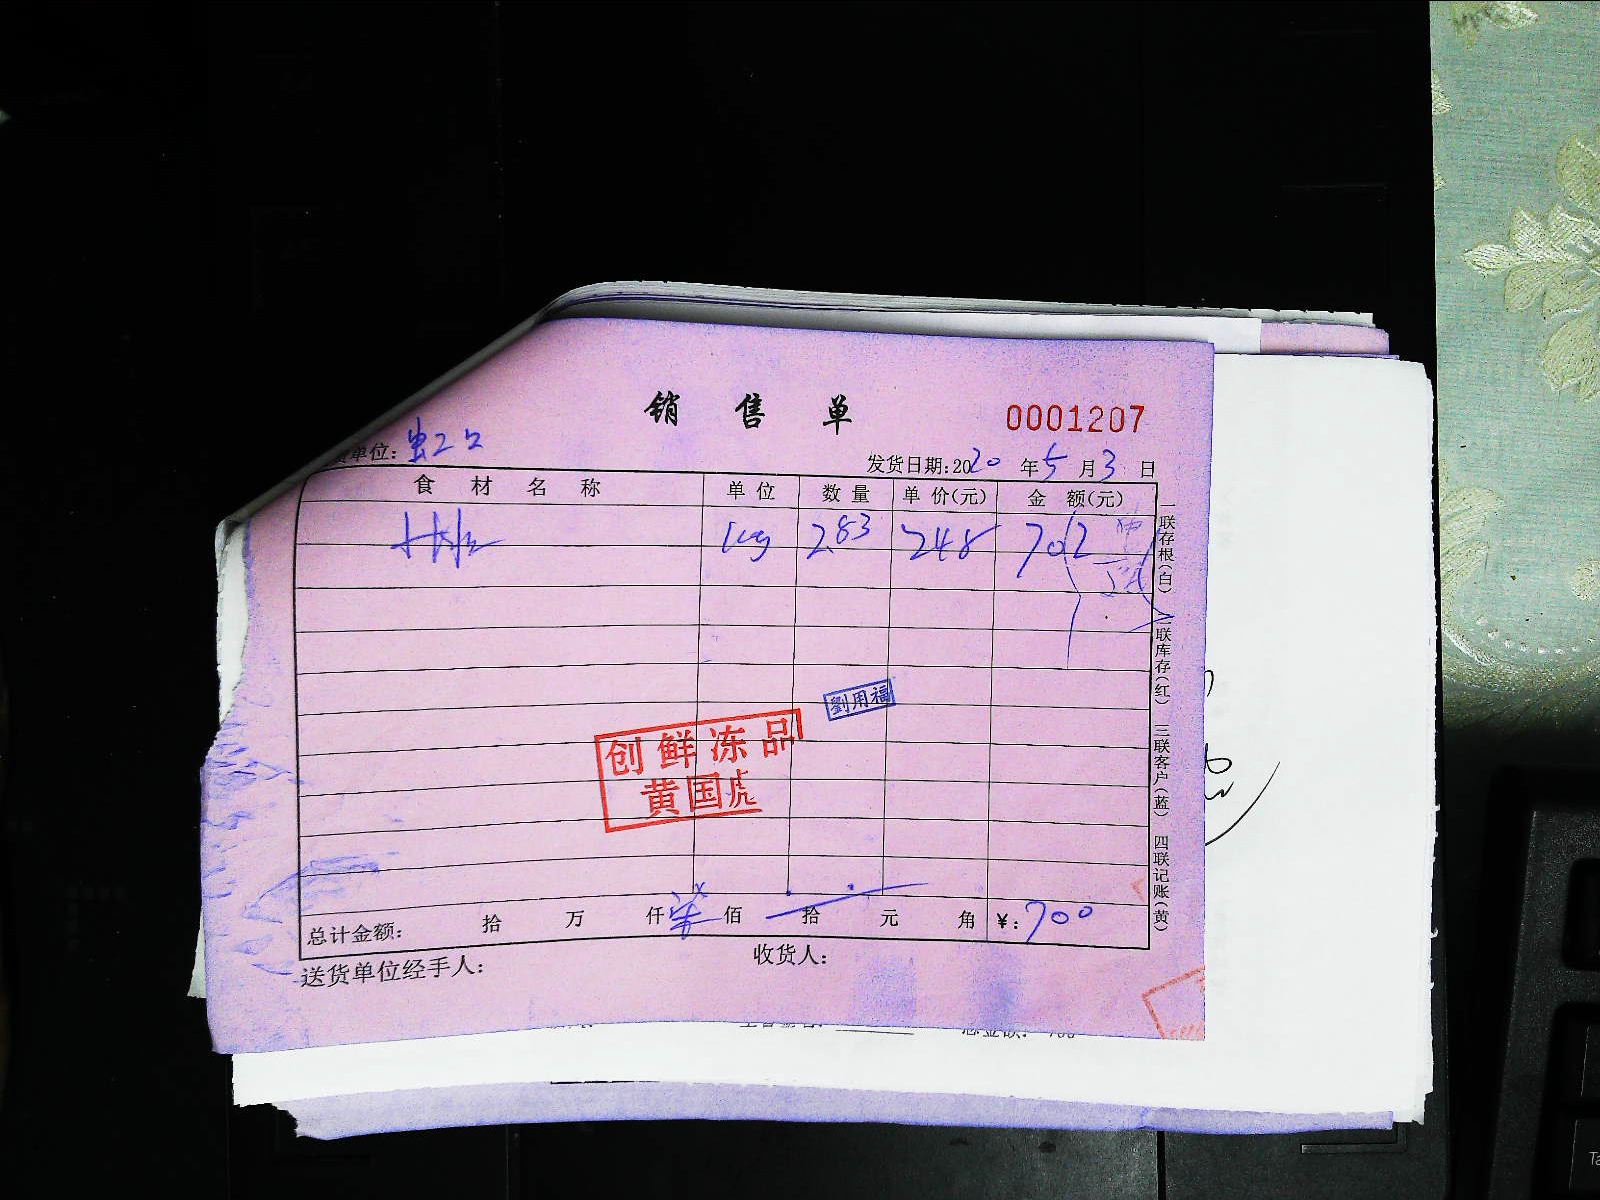 销 售 单
0001207
单位：
发货日期：2020 年 5 月 3 日
食 材 名 称 单 位 数 量 单 价（元） 金 额（元）
kg 2.83 248 702
劉用福
创鲜冻品
黄国虎
总计金额： 拾 万 仟 柒 佰 拾 元 角 ￥：700
送货单位经手人： 收货人：
一联存根（白） 二联库存（红） 三联客户（蓝） 四联记账（黄）